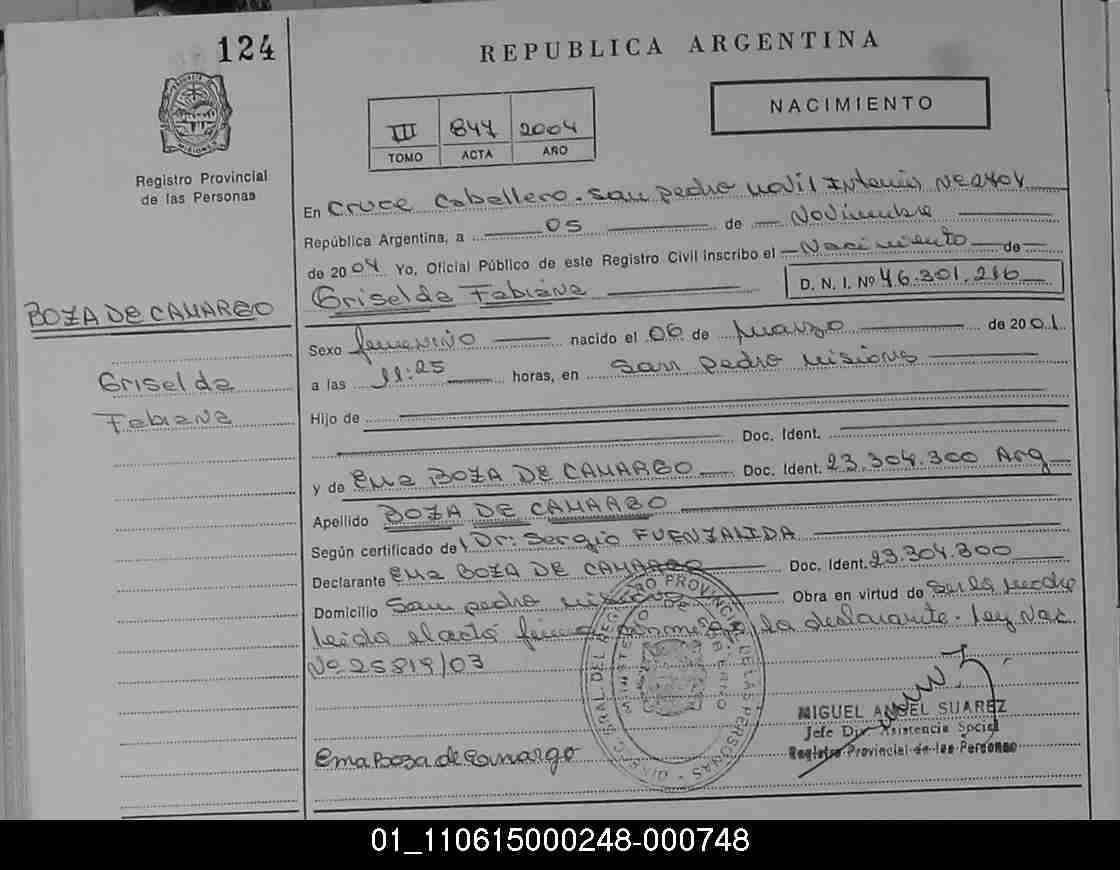 124
REPUBLICA ARGENTINA
NACIMIENTO
III 847 2004
TOMO ACTA AÑO
MISIONES
Registro Provincial
de las Personas
En Cruce Caballero. San pedro Movil Interno Nº 2404
República Argentina, a 05 de Noviembre
de 2004 Yo, Oficial Público de este Registro Civil inscribo el Nacimiento de
Griselda Fabiana D. N. I. Nº 46.301.216
BOZA DE CAMARGO
Griselda
Fabiana
Sexo femenino nacido el 06 de marzo de 2001
a las 11:25 horas, en San pedro misiones
Hijo de
Doc. Ident.
y de Ema BOZA DE CAMARGO Doc. Ident. 23.304.300 Arg
Apellido BOZA DE CAMARGO
Según certificado de Dr: Sergio FUENZALIDA
Declarante Ema BOZA DE CAMARGO Doc. Ident. 23.304.300
Domicilio San pedro misiones Obra en virtud de Ser la madre
leida el acta firma la declarante. Ley Nac.
Nº 25819/03
MIGUEL ANGEL SUAREZ
Jefe Dpr. Asistencia Social
Registro Provincial de las Personas
Ema Boza de Camargo
01_110615000248-000748